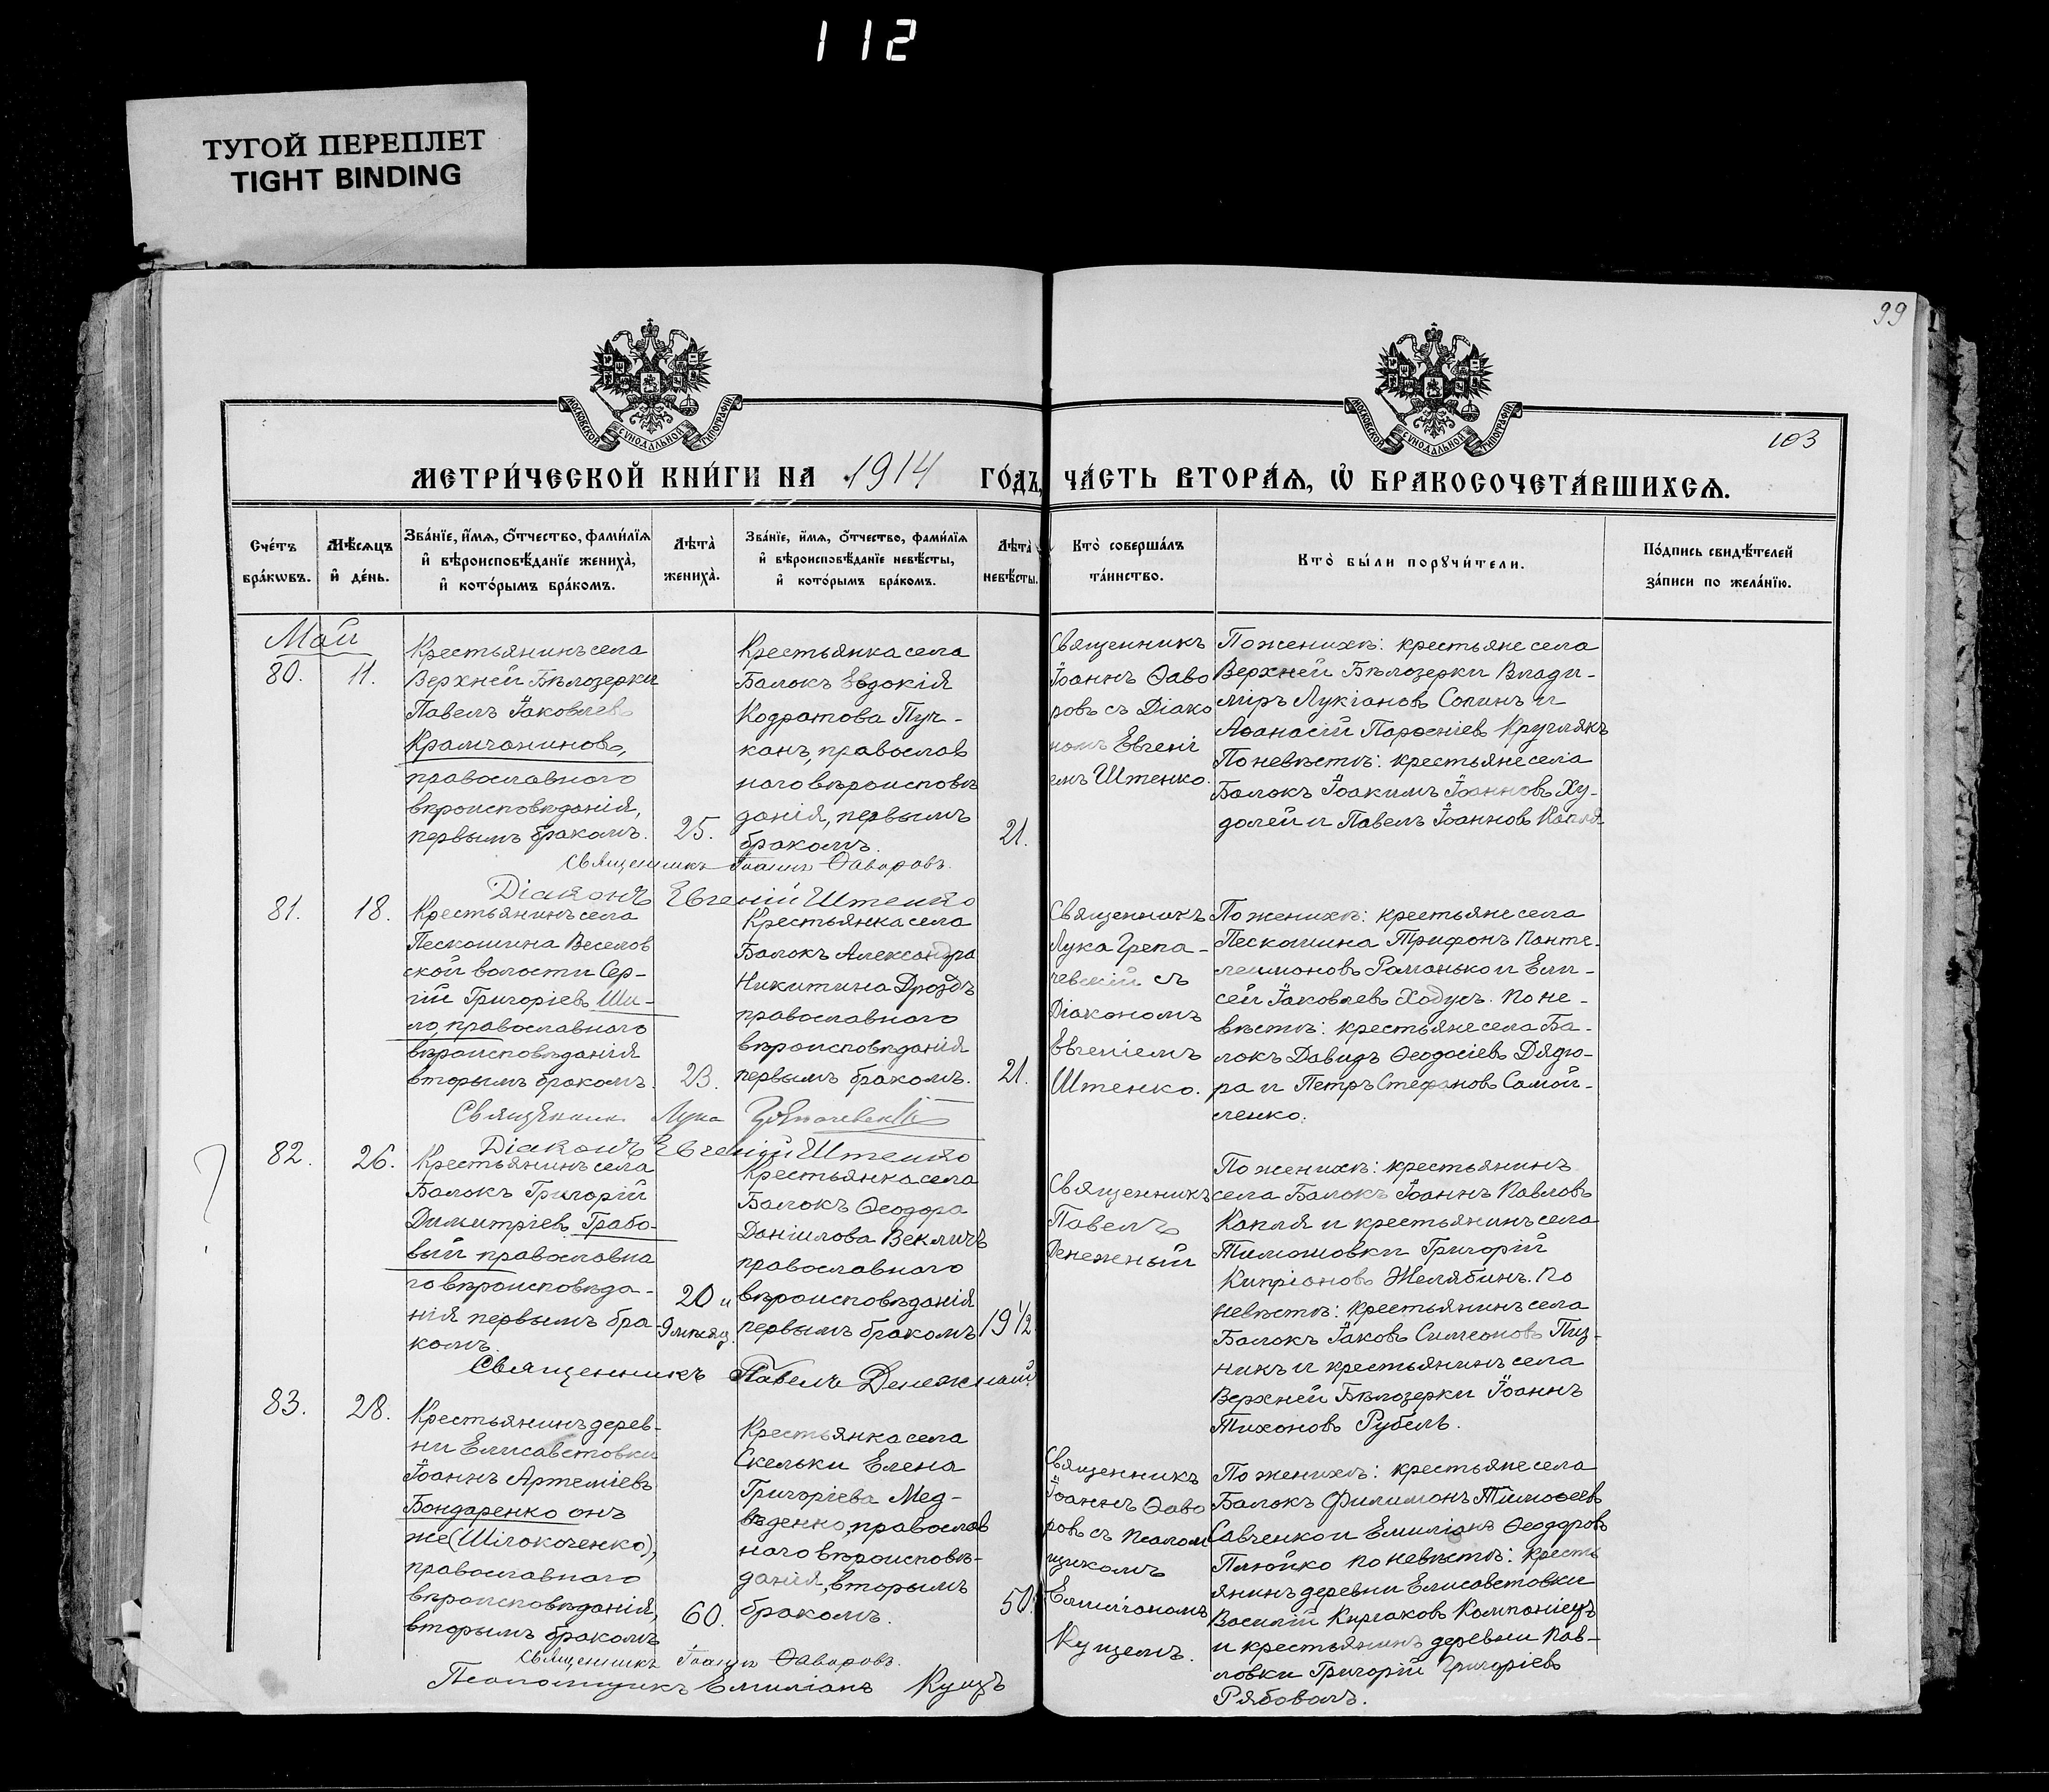 112
ТУГОЙ ПЕРЕПЛЕТ
TIGHT BINDING
99
МОСКОВСКОЙ СѴНОДАЛЬНОЙ ТИПОГРАФІИ
МОСКОВСКОЙ СѴНОДАЛЬНОЙ ТИПОГРАФІИ
103
МЕТРИ́ЧЕСКОЙ КНИ́ГИ НА 1914 ГО́ДЪ, ЧА́СТЬ ВТОРА́Ѧ, Ѡ҆ БРАКОСОЧЕТА́ВШИХСѦ.
Сче́тъ
бра́кѡвъ.
Мѣ́сѧцъ
и҆ де́нь.
Зва́нїе, и҆́мѧ, ѻ҆́тчество, фами́лїѧ
и҆ вѣроисповѣ́данїе жениха̀,
и҆ кото́рымъ бра́комъ.
Лѣта̀
жениха̀.
Зва́нїе, и҆́мѧ, ѻ҆́тчество, фами́лїѧ
и҆ вѣроисповѣ́данїе невѣ́сты,
и҆ кото́рымъ бра́комъ.
Лѣта̀
невѣ́сты.
Кто̀ соверша́лъ
та́инство.
Кто̀ бы́ли порꙋчи́тели.
По́дпись свидѣ́телей
за́писи по жела́нїю.
Май
80.
11.
Крестьянинъ села
Верхней Бѣлозерки
Павелъ Іаковлевъ
Крамчаниновъ,
православнаго
вѣроисповѣданія,
первымъ бракомъ.
25.
Крестьянка села
Балокъ Евдокія
Кодратова Пуч-
канъ, православ
наго вѣроисповѣ
данія, первымъ
бракомъ.
21.
Священникъ
Іоаннъ Ѳаво
ровъ съ Діако
номъ Евгені
емъ Штенко.
По женихѣ: крестьяне села
Верхней Бѣлозерки Влади-
міръ Лукіановъ Сопинъ и
Аѳанасій Парѳеніевъ Круглякъ
По невѣстѣ: крестьяне села
Балокъ Іоакимъ Іоанновъ Ху-
долей и Павелъ Іоанновъ Капля
Священникъ Іоаннъ Ѳаворовъ.
Діаконъ Евгеній Штенко
81.
18.
Крестьянинъ села
Пескошина Веселов
ской волости Сер-
гій Григоріевъ Ши-
ло, православнаго
вѣроисповѣданія
вторымъ бракомъ.
23.
Крестьянка села
Балокъ Александра
Никитина Дроздъ
православнаго
вѣроисповѣданія
первымъ бракомъ.
21.
Священникъ
Лука Грепа-
чевскій съ
Діакономъ
Евгеніемъ
Штенко.
По женихѣ: крестьяне села
Пескошина Трифонъ Панте-
леимоновъ Романько и Ели-
сей Іаковлевъ Ходусъ. По не-
вѣстѣ: крестьяне села Ба-
локъ Давидъ Ѳеодосіевъ Дядю-
ра и Петръ Стефановъ Самой-
ленко.
Священникъ Лука Грепачевскій
Діаконъ Евгеній Штенко
82.
26.
Крестьянинъ села
Балокъ Григорій
Димитріевъ Грабо-
вый православна
го вѣроисповѣда-
нія первымъ бра
комъ.
20 и
9 мѣсяц.
Крестьянка села
Балокъ Ѳеодора
Даніилова Векличъ
православнаго
вѣроисповѣданія
первымъ бракомъ
19 1/2
Священникъ
Павелъ
Денежный
По женихѣ: крестьянинъ
села Балокъ Іоаннъ Павловъ
Капля и крестьянинъ села
Тимошовки Григорій
Кипріановъ Желябинъ. По
невѣстѣ: крестьянинъ села
Балокъ Іаковъ Симеоновъ Пиз-
никъ и крестьянинъ села
Верхней Бѣлозерки Іоаннъ
Тихоновъ Рубель.
Священникъ Павелъ Денежный
83.
28.
Крестьянинъ дерев-
ни Елисаветовки
Іоаннъ Артеміевъ
Бондаренко онъ
же (Шілокоченко),
православнаго
вѣроисповѣданія,
вторымъ бракомъ
60.
Крестьянка села
Скельки Елена
Григоріева Мед-
вѣденко, православ
наго вѣроисповѣ-
данія, вторымъ
бракомъ.
50.
Священникъ
Іоаннъ Ѳаво
ровъ съ Псалом
щикомъ
Емиліаномъ
Куцемъ.
По женихѣ: крестьяне села
Балокъ Филимонъ Тимоѳеевъ
Савченко и Емиліанъ Ѳеодоровъ
Плюйко По невѣстѣ: кресть
янинъ деревни Елисаветовки
Василій Киріаковъ Компаніецъ
и крестьянинъ деревни Пав-
ловки Григорій Григоріевъ
Рябовалъ.
Священникъ Іоаннъ Ѳаворовъ.
Псаломщикъ Емиліанъ Куцъ